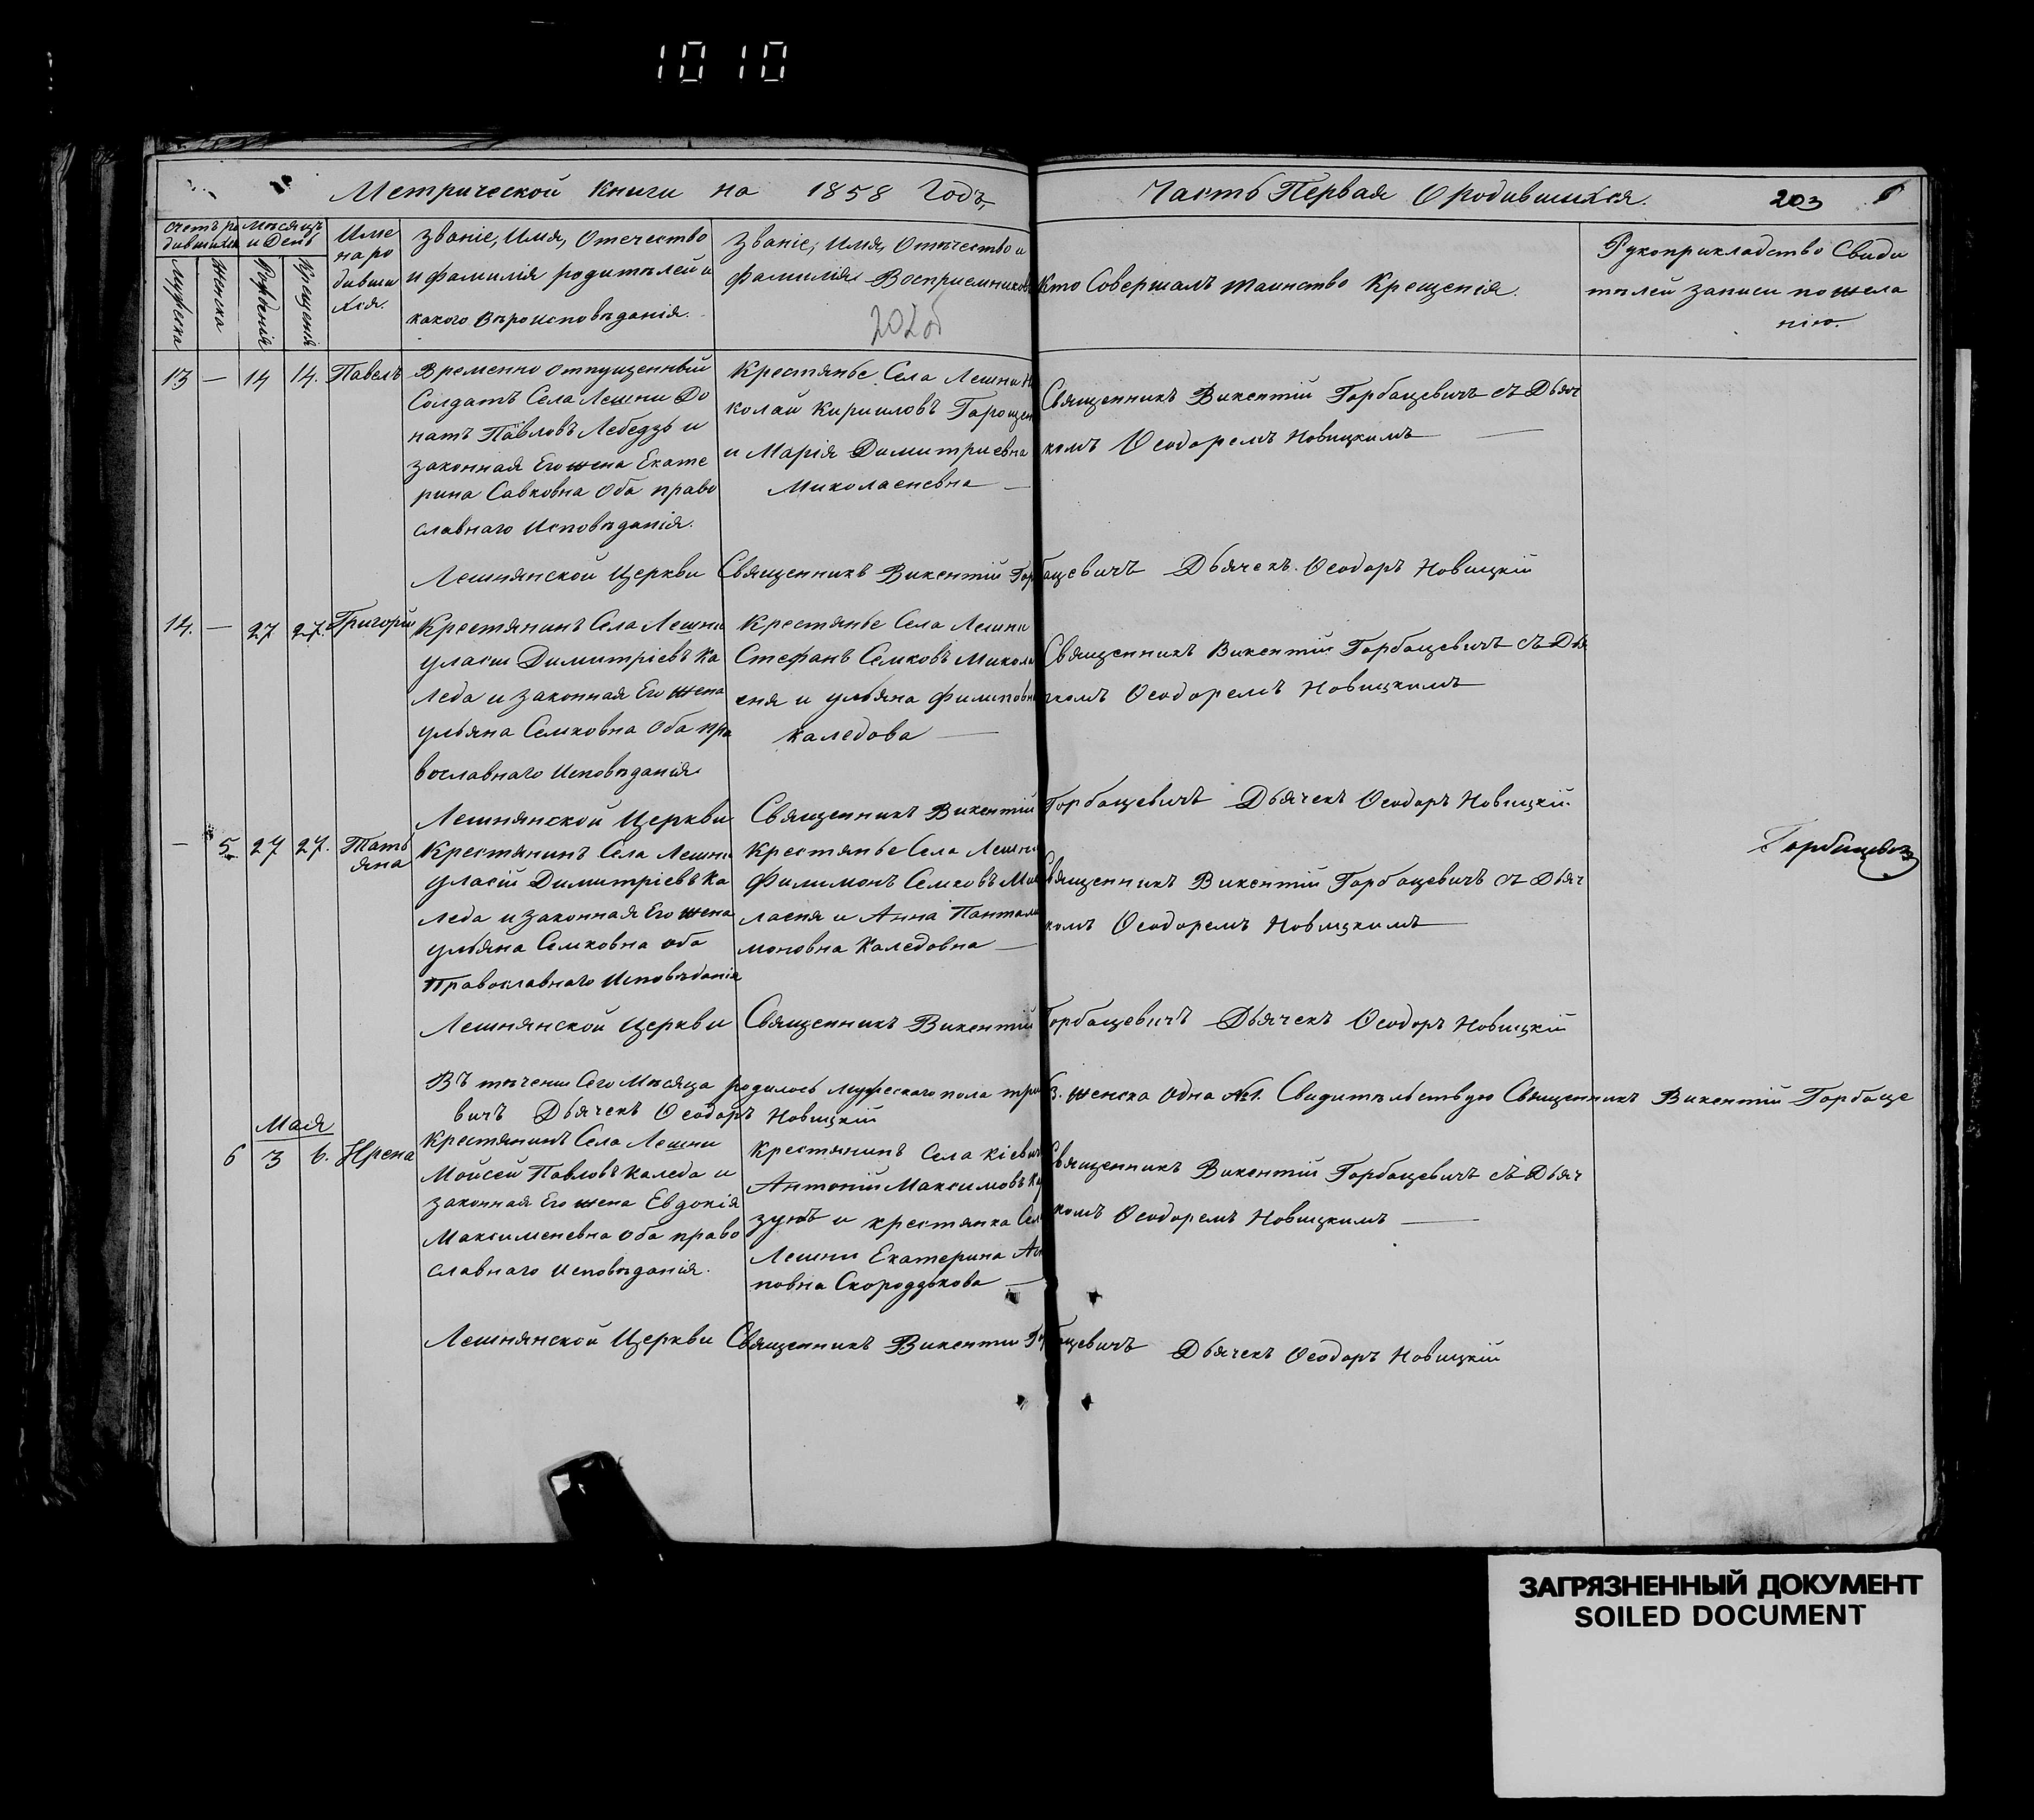 10 10
Метрической книги на 1858 Годъ, Часть Первая О родившихся. 203
Счетъ ро
дившихся
Мѣсяцъ
и День
Мужеска
Женска
Рожденія
Крещенія
Име
на ро
дивши
хся.
Званіе, Имя, Отечество
и фамилія родителей и
какого вѣроисповѣданія.
Званіе, Имя, Отечество и
фамилія Восприемниковъ
202об
Кто Совершалъ таинство Крещенія.
Рукоприкладство Свиди
телей записи по жела
нію.
13 — 14 14. Павелъ
Временно отпущенный
Солдатъ Села Лешни До
натъ Павловъ Лебедзь и
законная Его жена Екате
рина Савковна Оба право
славнаго Исповѣданія.
Крестянье Села Лешни Ни
колай Кириловъ Горощен
и Марія Димитриевна
Миколаеневна —
Священникъ Викентій Горбацевичъ съ Дьяч
комъ Ѳеодоромъ Новицкимъ —
Лешнянской Церкви Священникъ Викентій Горбацевичъ Дьячекъ Ѳеодоръ Новицкій
14. — 27 27. Григорій
Крестянинъ Села Лешни
Уласій Димитріевъ Ка
леда и законная Его жена
Ульяна Семковна Оба пра
вославнаго Исповѣданія
Крестянье Села Лешни
Стефанъ Семковъ Микола
еня и Ульяна Филиповна
Каледова —
Священникъ Викентій Горбацевичъ съ Дья
чкомъ Ѳеодоромъ Новицкимъ
Лешнянской Церкви Священникъ Викентій Горбацевичъ Дьячекъ Ѳеодоръ Новицкій
— 5 27 27. Тать
яна
Крестянинъ Села Лешни
Уласій Димитріевъ Ка
леда и законная Его жена
Ульяна Семковна оба
Православнаго Исповѣданія
Крестянье Села Лешни
Филимонъ Семковъ Мико
лаеня и Анна Пантале
моновна Каледовна —
Священникъ Викентій Горбацевичъ съ Дьяч
комъ Ѳеодоромъ Новицкимъ
Горбацевич
Лешнянской Церкви Священникъ Викентій Горбацевичъ Дьячекъ Ѳеодоръ Новицкій
Въ теченіи Сего Мѣсяца родилось мужескаго пола три 3. женска одна №1. Свидительствую Священникъ Викентій Горбаце
вичъ Дьячекъ Ѳеодоръ Новицкій
Мая
6 3 6. Ирена
Крестянинъ Села Лешни
Мойсей Павловъ Каледа и
законная Его жена Евдокія
Максименевна Оба право
славнаго Исповѣданія.
Крестянинъ Села Кіевич
Антоній Максимовъ Ку
зуюъ и крестянка Села
Лешни Екатерина Ан
повна Скороддзкова —
Священникъ Викентій Горбацевичъ съ Дьяч
комъ Ѳеодоромъ Новицкимъ —
Лешнянской Церкви Священникъ Викентій Горбацевичъ Дьячекъ Ѳеодоръ Новицкій
ЗАГРЯЗНЕННЫЙ ДОКУМЕНТ
SOILED DOCUMENT